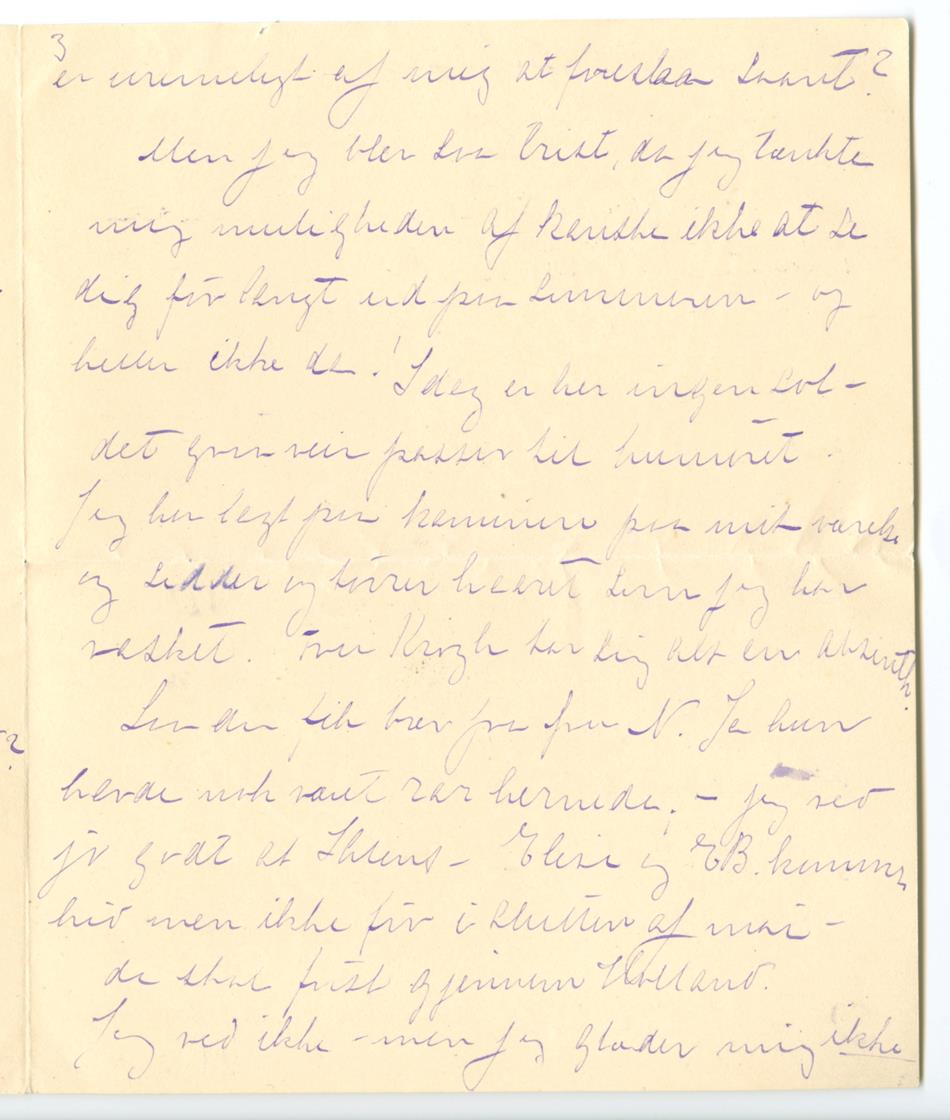 3
er urimeligt af mig at foreslaa saant?
Men jeg blev saa trist, da jeg tænkte
mig muligheden af kanske ikke at se
dig før langt ud paa sommeren – og
heller ikke da! Idag er her ingen sol –
det graa veir passer til humøret.
Jeg har lagt paa kaminen paa mit værelse
og sidder og tørrer haaret som jeg har
vasket. Tver Krogh tar sig alt en absinth.
du fik brev fra fru N. Ja hun
havde nok været rar hernede. – jeg ved
jo godt at Ibsens – Elise og EB. kommer
hid men ikke før i slutten af mai –
de skal først gjennem Holland.
Jeg ved ikke – men jeg glæder mig ikke